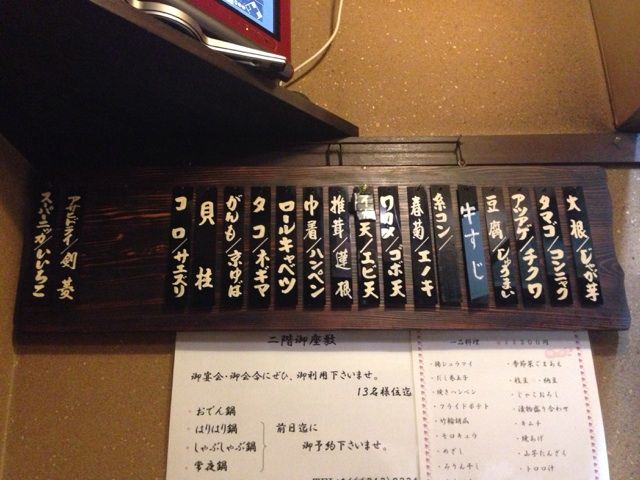 大根/じゃが芋
タマゴ/コンニャク
アツアゲ/チクワ
豆腐/しゅうまい
牛すじ
糸コン/
春菊/エノキ
ワカメ/ゴボ天
天/エビ天
椎茸/蓮根
巾着/ハンペン
ロールキャベツ
タコ/ネギマ
がんも/京ゆば
貝柱
コロ/サエズリ
アサヒドライ/剣菱
スーパーニッカ/いいちこ
二階御座敷
御宴会・御会合にぜひ、御利用下さいませ。
13名様位迄
・おでん鍋
・はりはり鍋
・しゃぶしゃぶ鍋
・常夜鍋
前日迄に
御予約下さいませ。
一品料理
300円
・季節菜ごまあえ
・枝豆・納豆
・じゃこおろし
・漬物盛り合わせ
・キムチ
・焼あげ
・山芋たんざく
・トロロ汁
・揚シュウマイ
・だし巻玉子
・焼きハンペン
・フライドポテト
・竹輪胡瓜
・モロキュウ
・めざし
・みりん干し